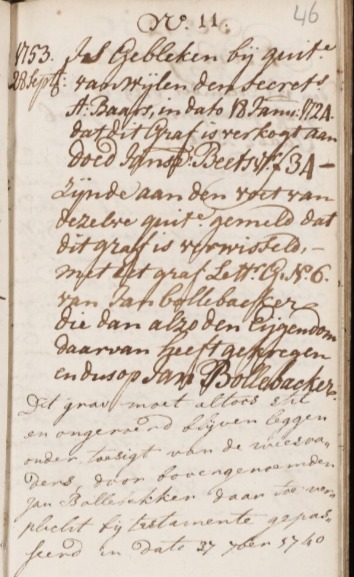 46
No. 11.
1753. Is Gebleken bij quite.
28 Septr: van wijlen den Secrets
A: Baars, in dato 18 Janu: 1724.
dat dit Graf is verkogt aan
Doed Janse Beets vr. f 34 –
zijnde aan den voet van
dezelve quite. gemeld dat
dit graf is verwisseld, –
met het graf Lettr. G. No. 6.
van Jan bollebacker
die dan alzo den Eijgendom
daarvan heeft gekregen
en dus op Jan Bollebacker.
Dit grav moet altoos stil
en ongeroerd blijven leggen
onder toesigt van de weesva-
ders, door bovengenoemden
Jan Bollebakker daar toe ver-
plicht bij testamente gepas-
seerd in dato 27 7ber 1740